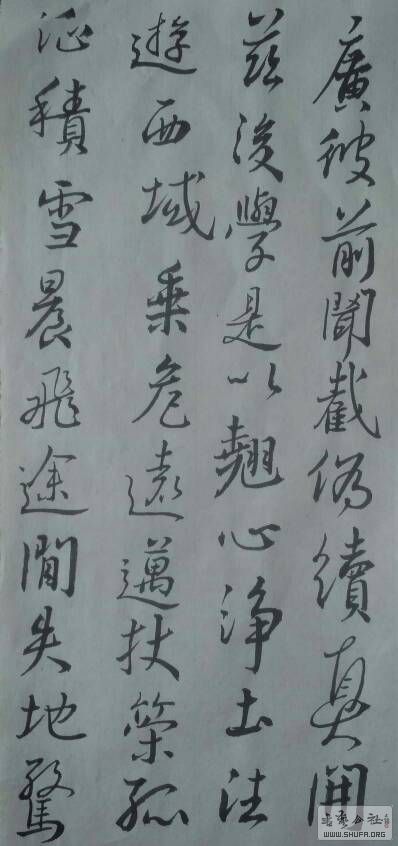 廣彼前聞截偽續真開
茲後學是以翹心淨土法
遊西域乘危遠邁杖策孤
征積雪晨飛途間失地驚
书艺公社
WWW.SHUFA.ORG